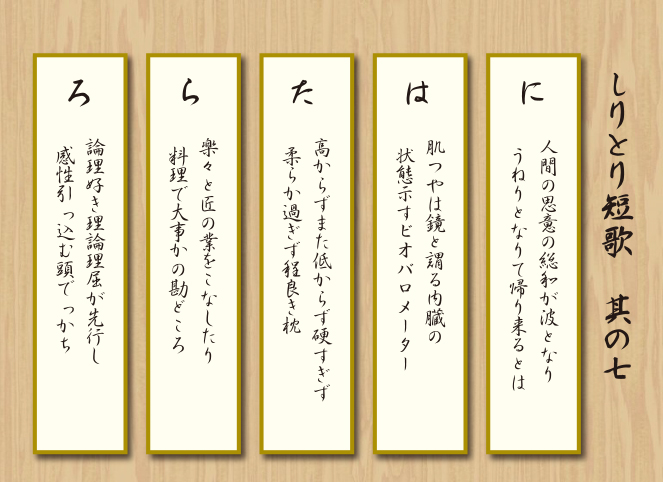 しりとり短歌 其の七
に
人間の思意の総和が波となり
うねりとなりて帰り来るとは
は
肌つやは鏡と謂る内臓の
状態示すビオバロメーター
た
高からずまた低からず硬すぎず
柔らか過ぎず程良き枕
ら
楽々と匠の業をこなしたり
料理で大事かの勘どころ
ろ
論理好き理論理屈が先行し
感性引っ込む頭でっかち